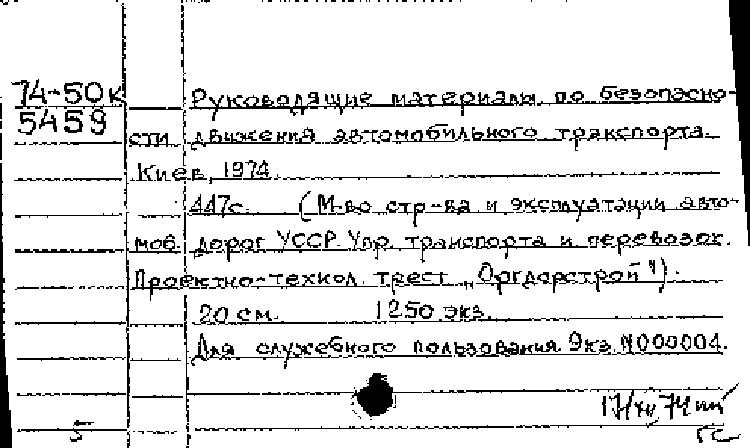 74-50к Руководящие материалы по безопасно-
5459 сти движения автомобильного транспорта.
Киев, 1974
447с. (М-во стр-ва и эксплуатации авто-
моб. дорог УССР. Упр. транспорта и перевозок.
Проектно-технол. трест „Оргдорстрой").
20 см. 1250 экз.
Для служебного пользования. Экз. №000004.
17/XII 74
5